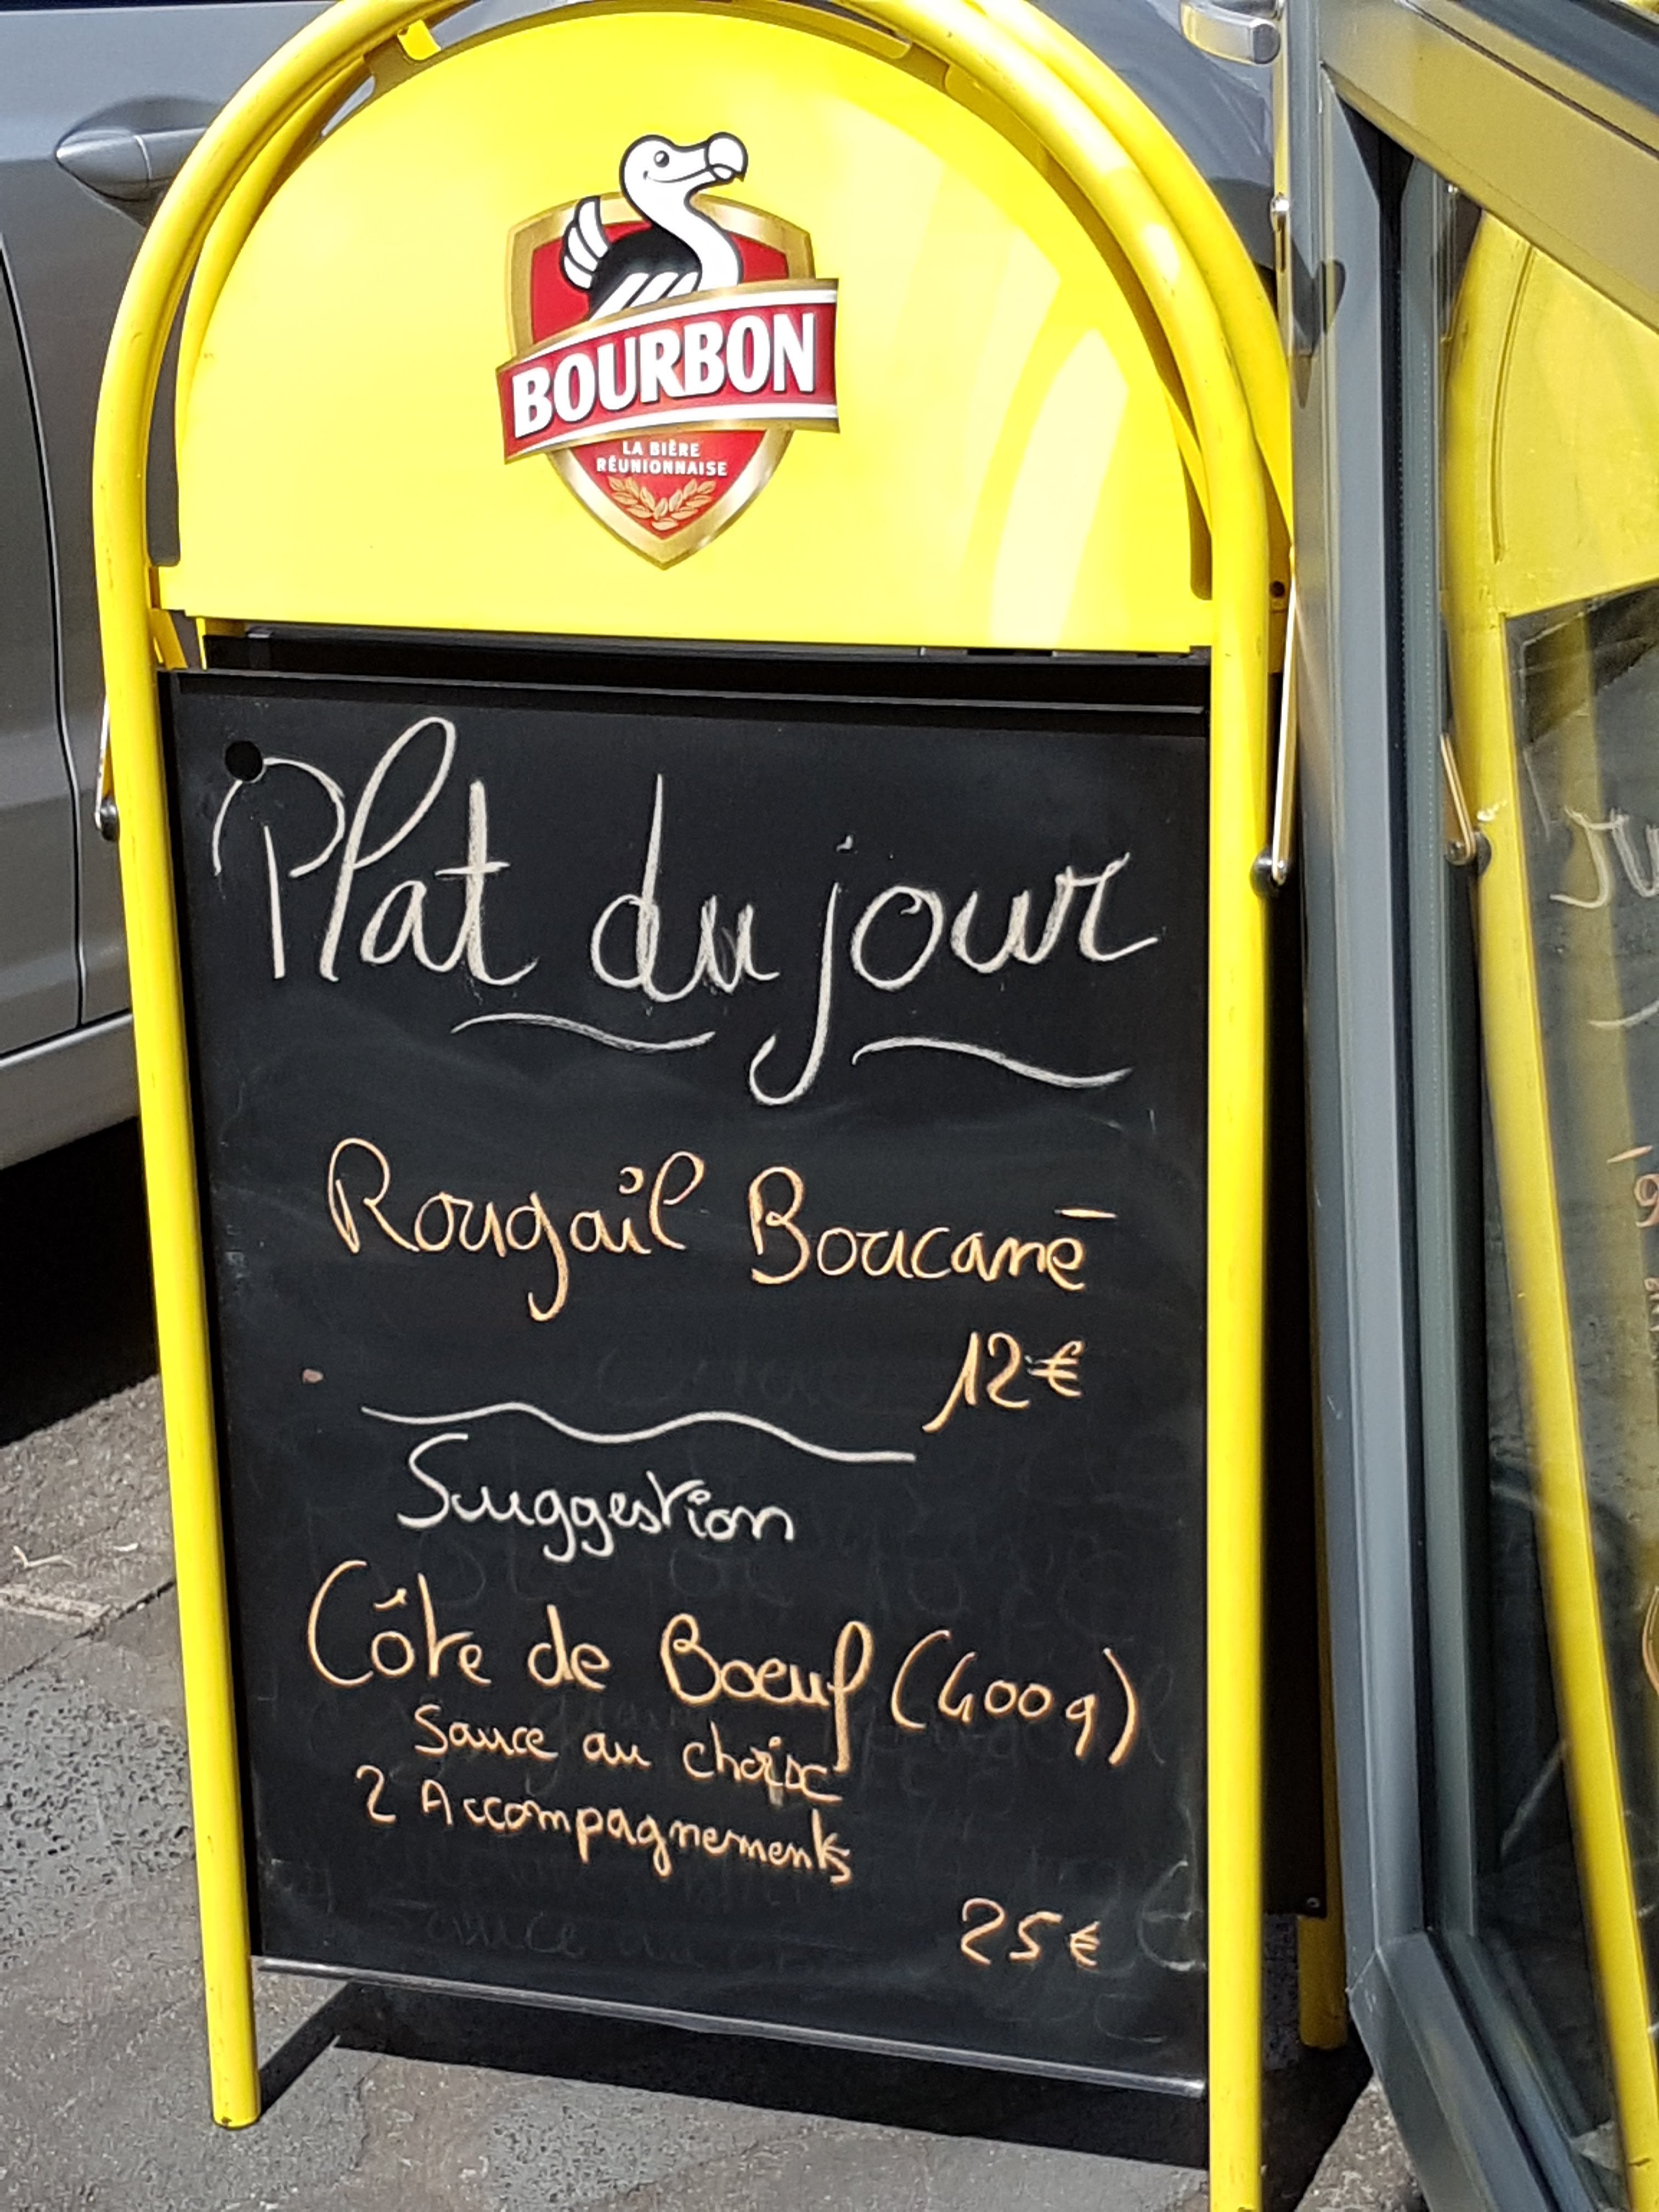 BOURBON
LA BIÈRE
RÉUNIONNAISE
Plat du jour
Rougail Boucané
12€
Suggestion
Côte de Boeuf (400g)
Sauce au choix
2 Accompagnements
25€